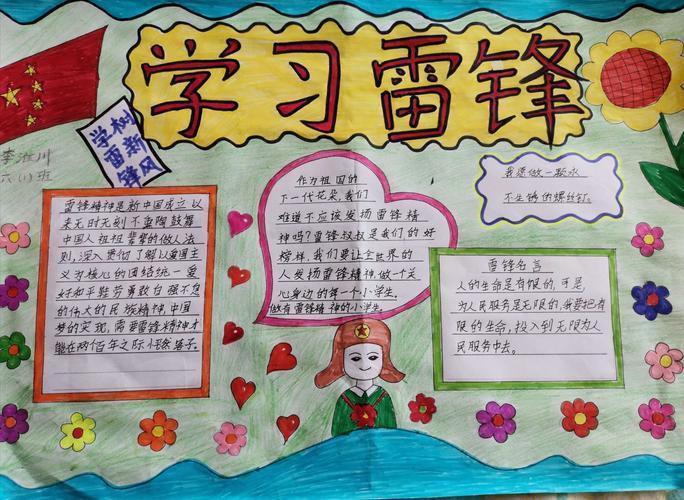 学习雷锋
学雷锋
树新风
李
六(1)班
雷锋精神是新中国成立以
来无时无刻不熏陶鼓舞
中国人祖祖辈辈的做人法
则,深入贯彻了解以爱国主
义为核心的团结统一爱
好和平勤劳勇敢自强不息
的伟大的民族精神,中国
梦的实现,需要雷锋精神才
能在两佰年之际
作为祖国的
下一代花朵,我们
难道不应该发扬雷锋精
神吗?雷锋叔叔是我们的好
榜样,我们要让全世界的
人发扬雷锋精神,做一个关
心身边的每一个小学生。
做有雷锋精神的小学生。
我愿做一颗永
不生锈的螺丝钉。
雷锋名言
人的生命是有限的,可是,
为人民服务是无限的,我要把有
限的生命,投入到无限为人
民服务中去。